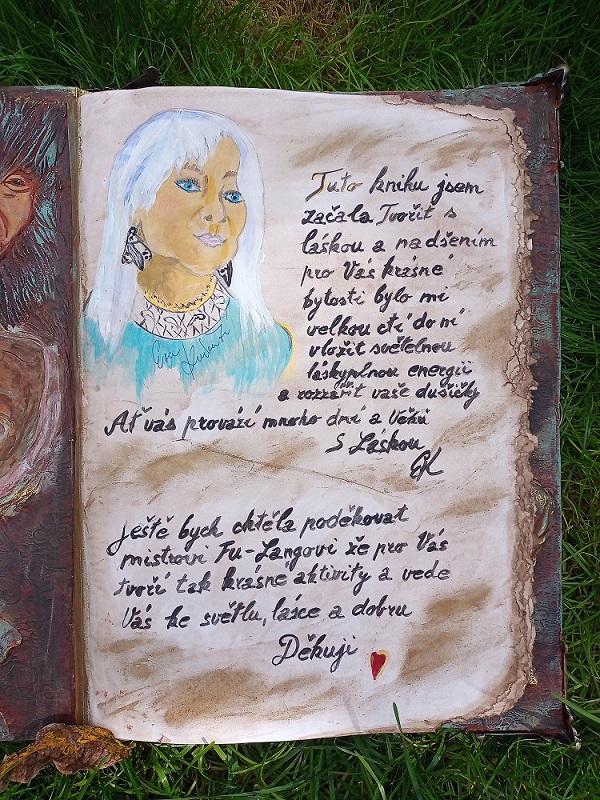 Tuto knihu jsem
začala Tvořit s
láskou a nadšením
pro Vás krásné
bytosti bylo mi
velkou ctí do ní
vložit světelnou
láskyplnou energii
a rozzářit vaše dušičky
Ať vás provází mnoho dní a Věků
S Láskou
EK
Ještě bych chtěla poděkovat
mistrovi Fu-Langovi že pro Vás
tvoří tak krásné aktivity a vede
Vás ke světlu, lásce a dobru
Děkuji